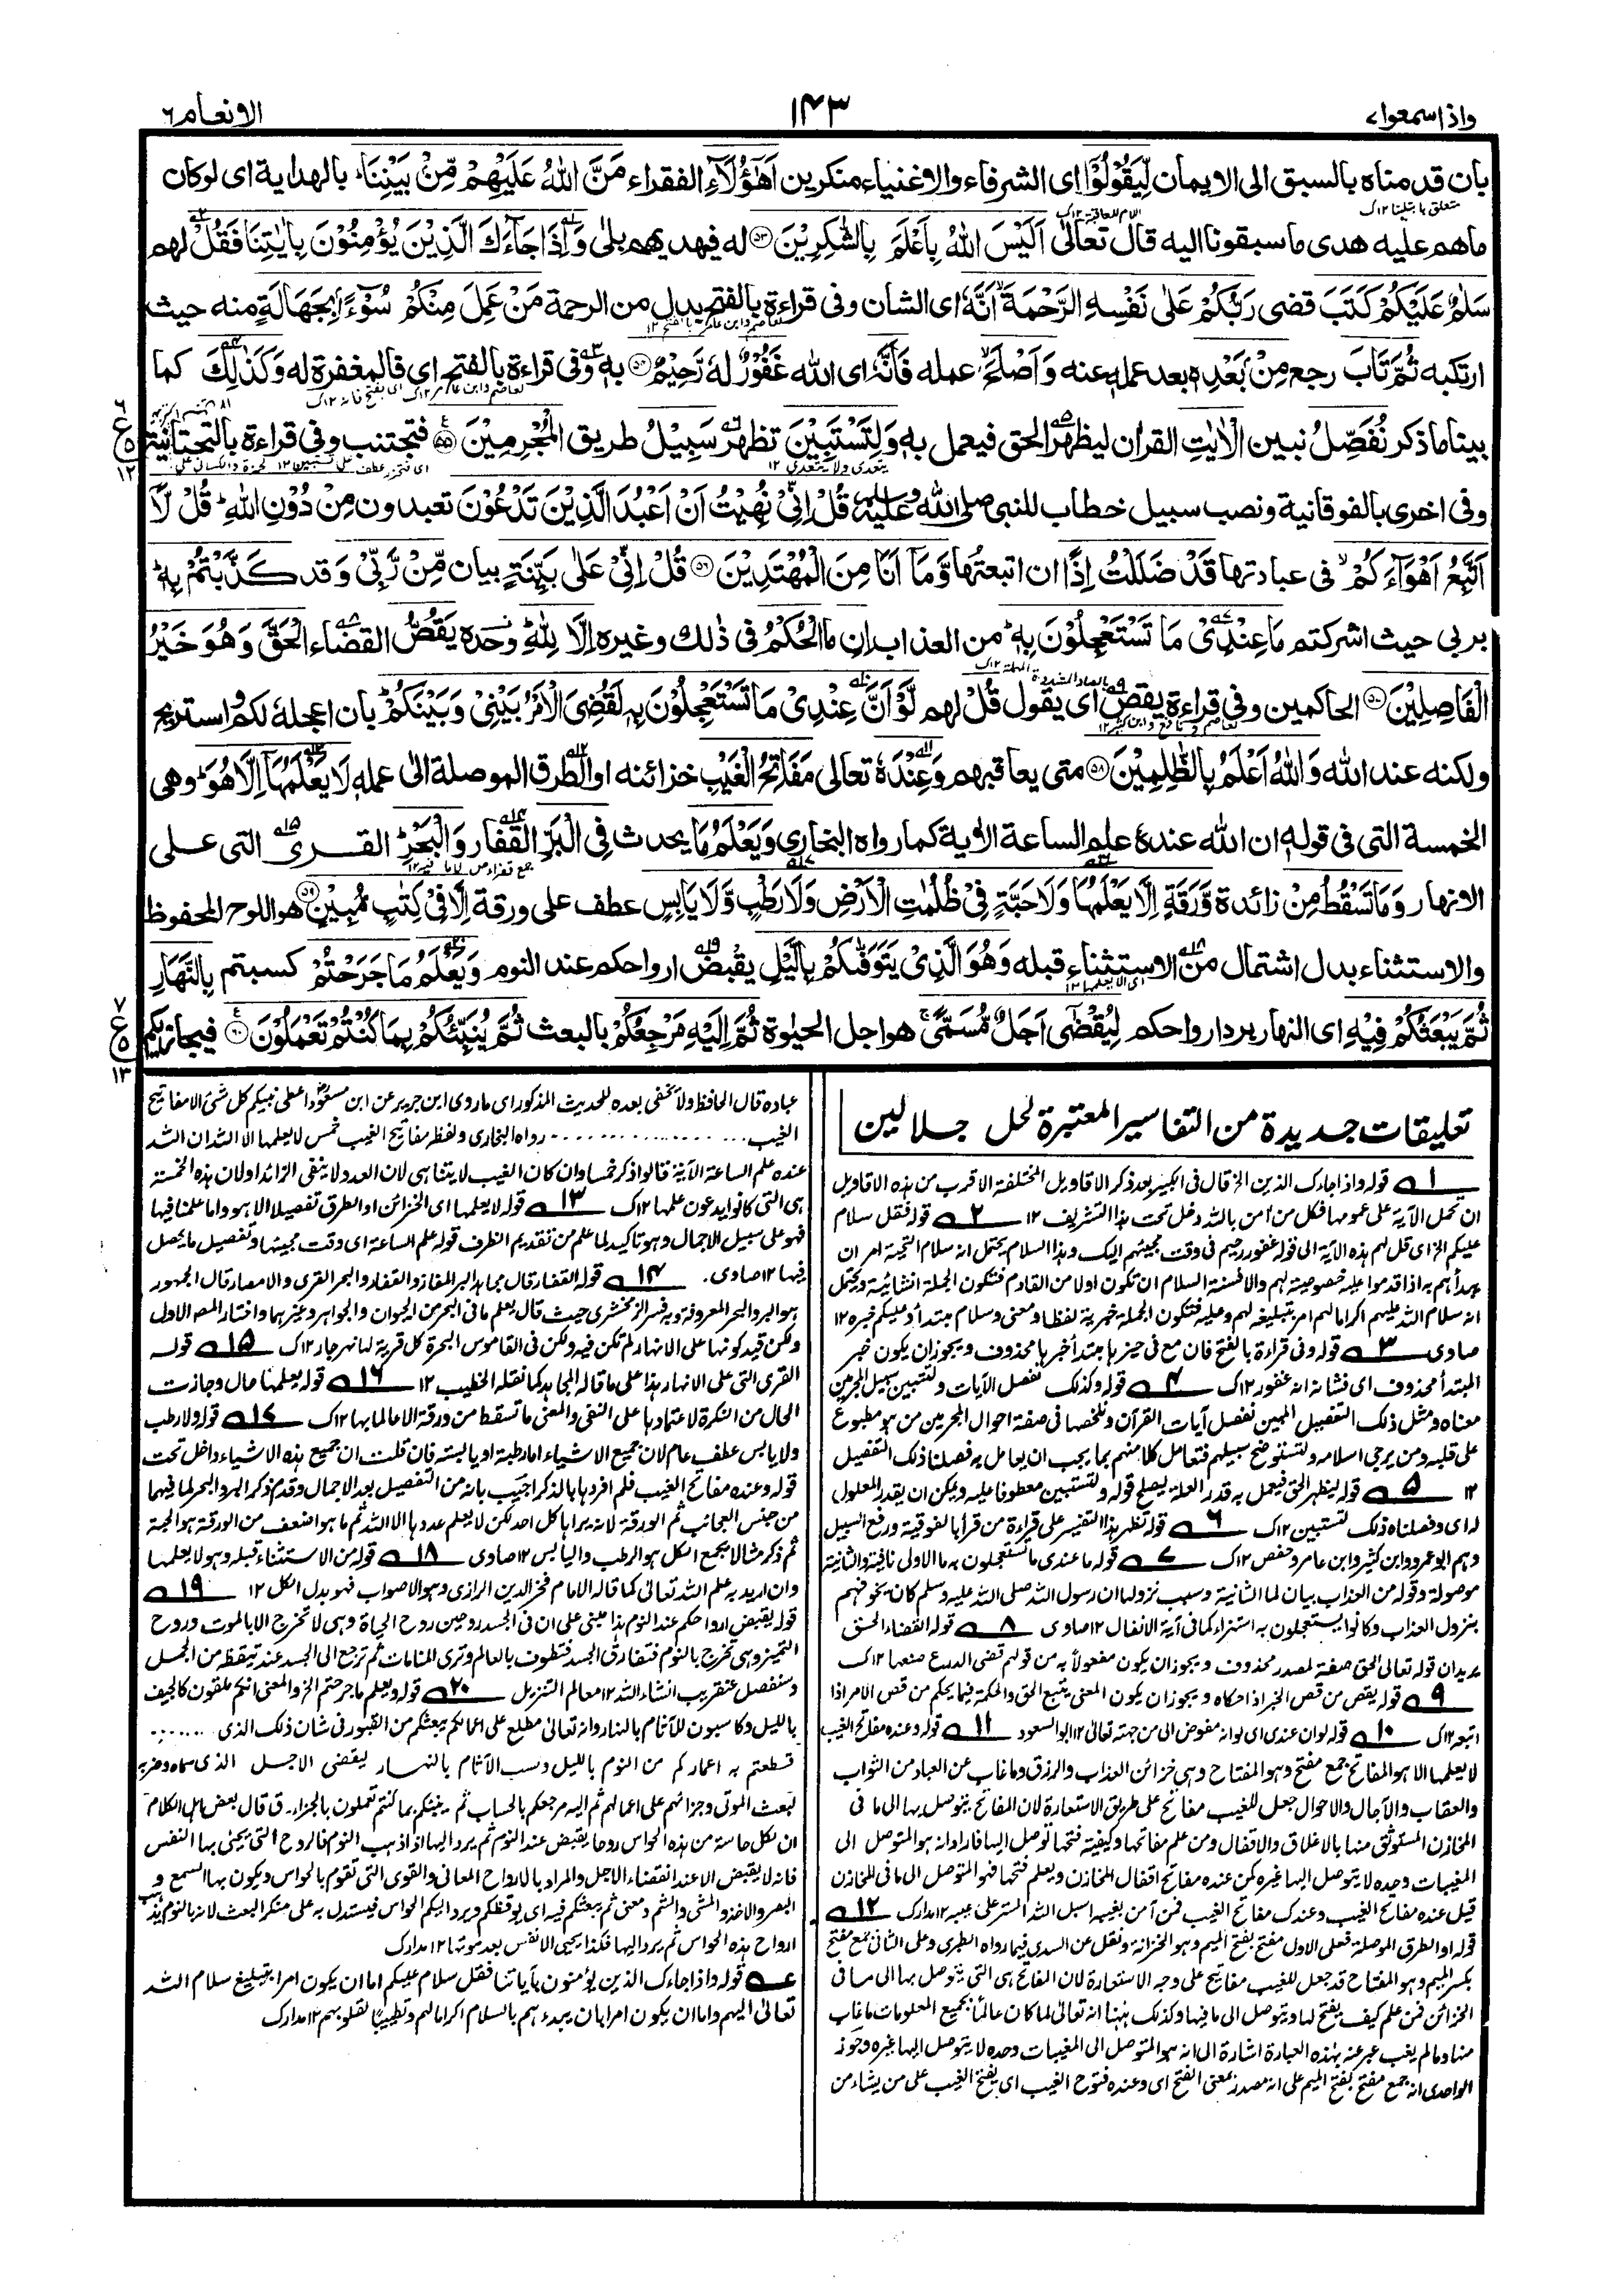 واذا سمعوا ٧
١٤٣
الانعام ٦
بان قدمناه بالسبق الى الايمان لِّيَقُوْلُوْٓا اى الشرفاء والاغنياء منكرين اَهٰٓؤُلَآءِ الفقراء مَنَّ اللهُ عَلَيْهِمْ مِّنْۢ بَيْنِنَا ؕ بالهداية اى لوكان
ماهم عليه هدى ما سبقونا اليه قال تعالىٰ اَلَيْسَ اللهُ بِاَعْلَمَ بِالشّٰكِرِيْنَ ﴿٥٣﴾ له فيهديهم بلىٰ وَاِذَا جَآءَكَ الَّذِيْنَ يُؤْمِنُوْنَ بِاٰيٰتِنَا فَقُلْ لهم
سَلٰمٌ عَلَيْكُمْ كَتَبَ قضى رَبُّكُمْ عَلٰى نَفْسِهِ الرَّحْمَةَ ۙ اَنَّهٗ اى الشان وفى قراءة بالفتح بدل من الرحمة مَنْ عَمِلَ مِنْكُمْ سُوْٓءًۢا بِجَهَالَةٍ منه حيث
ارتكبه ثُمَّ تَابَ رجع مِنْۢ بَعْدِهٖ بعد عمله عنه وَاَصْلَحَ ۙ عمله فَاَنَّهٗ اى الله غَفُوْرٌ له رَّحِيْمٌ ﴿٥٤﴾ به وفى قراءة بالفتح اى فالمغفرة له وَكَذٰلِكَ كما
بينا ما ذكر نُفَصِّلُ نبين الْاٰيٰتِ القران ليظهر الحق فيعمل به وَلِتَسْتَبِيْنَ تظهر سَبِيْلُ طريق الْمُجْرِمِيْنَ ﴿٥٥﴾ فتجتنب وفى قراءة بالتحتانية
وفى اخرى بالفوقانية ونصب سبيل خطاب للنبى صلى الله عليه وسلم قُلْ اِنِّىْ نُهِيْتُ اَنْ اَعْبُدَ الَّذِيْنَ تَدْعُوْنَ تعبدون مِنْ دُوْنِ اللهِ ؕ قُلْ لَّآ
اَتَّبِعُ اَهْوَآءَكُمْ ۙ فى عبادتها قَدْ ضَلَلْتُ اِذًا ان اتبعتها وَّمَآ اَنَا مِنَ الْمُهْتَدِيْنَ ﴿٥٦﴾ قُلْ اِنِّىْ عَلٰى بَيِّنَةٍ بيان مِّنْ رَّبِّىْ وَ قد كَذَّبْتُمْ بِهٖ ؕ
بربى حيث اشركتم مَا عِنْدِىْ مَا تَسْتَعْجِلُوْنَ بِهٖ ؕ من العذاب اِنِ ما الْحُكْمُ فى ذٰلك وغيره اِلَّا لِلّٰهِ ؕ وحده يَقُصُّ القضاء الْحَقَّ وَهُوَ خَيْرُ
الْفَاصِلِيْنَ ﴿٥٧﴾ الحاكمين وفى قراءة يقص اى يقول قُلْ لهم لَّوْ اَنَّ عِنْدِىْ مَا تَسْتَعْجِلُوْنَ بِهٖ لَقُضِىَ الْاَمْرُ بَيْنِىْ وَبَيْنَكُمْ ؕ بان اعجله لكم واستريح
ولكنه عند الله وَاللهُ اَعْلَمُ بِالظّٰلِمِيْنَ ﴿٥٨﴾ متى يعاقبهم وَعِنْدَهٗ تعالى مَفَاتِحُ الْغَيْبِ خزائنه او الطرق الموصلة الى عمله لَا يَعْلَمُهَآ اِلَّا هُوَ ؕ وهى
الخمسة التى فى قوله ان الله عنده علم الساعة الاية كما رواه البخارى وَيَعْلَمُ مَا يحدث فِى الْبَرِّ القفار وَالْبَحْرِ ؕ القرى التى على
الانهار وَمَا تَسْقُطُ مِنْ زائدة وَّرَقَةٍ اِلَّا يَعْلَمُهَا وَلَا حَبَّةٍ فِىْ ظُلُمٰتِ الْاَرْضِ وَلَا رَطْبٍ وَّلَا يَابِسٍ عطف على ورقة اِلَّا فِىْ كِتٰبٍ مُّبِيْنٍ ﴿٥٩﴾ هو اللوح المحفوظ
والاستثناء بدل اشتمال من الاستثناء قبله وَهُوَ الَّذِىْ يَتَوَفّٰىكُمْ بِالَّيْلِ يقبض ارواحكم عند النوم وَيَعْلَمُ مَا جَرَحْتُمْ كسبتم بِالنَّهَارِ
ثُمَّ يَبْعَثُكُمْ فِيْهِ اى النهار برد ارواحكم لِيُقْضٰٓى اَجَلٌ مُّسَمًّى ۚ هو اجل الحيٰوة ثُمَّ اِلَيْهِ مَرْجِعُكُمْ بالبعث ثُمَّ يُنَبِّئُكُمْ بِمَا كُنْتُمْ تَعْمَلُوْنَ ﴿٦٠﴾ فيجازيكم
تعليقات جديدة من التفاسير المعتبرة لحل جلالين
١ قوله واذا جاءك الذين الخ قال فى الكبير بعد ذكر الاقاويل المختلفة الاقرب من هذه الاقاويل
ان تحمل الآية على عمومها فكل من آمن بالله دخل تحت هذا التشريف ١٢ ٢ قوله فقل سلام
عليكم الخ اى قل لهم هذه الآية الى قوله غفور رحيم فى وقت مجيئهم اليك وهذا السلام يحتمل انه سلام التحية امر ان
يبدأهم به اذا قدموا عليه خصوصية لهم والا فسنة السلام ان تكون اولا من القادم فتكون الجملة انشائية ويحتمل
انه سلام الله عليهم اكراما لهم امر بتبليغه لهم وعليه فتكون الجملة خبرية لفظا ومعنى وسلام مبتدأ وعليكم خبره ١٢
صاوى ٣ قوله وفى قراءة بالفتح فان مع فى حيزها مبتدأ خبرها محذوف ويجوز ان يكون خبر
المبتدأ محذوف اى فشانه انه غفور ١٢ك ٤ قوله وكذلك نفصل الآيات ولتستبين سبيل المجرمين
معناه ومثل ذلك التفصيل المبين نفصل آيات القرآن ونلخصها فى صفة احوال المجرمين من هو مطبوع
على قلبه ومن يرجى اسلامه ولتستوضح سبيلهم فتعامل كلا منهم بما يجب ان يعامل به فصلنا ذلك التفصيل
١٢ ٥ قوله ليظهر الحق فيعمل به قدر العلة ليصلح قوله ولتستبين معطوفا عليه ويمكن ان يقدر المعلول
له اى وفصلناه ذلك لتستبين ١٢ك ٦ قوله تظهر هذا التفسير على قراءة من قرأ بالفوقية ورفع السبيل
وهم ابو عمرو وابن كثير وابن عامر وحفص ١٢ك ٧ قوله ما عندى ما تستعجلون به ما الاولى نافية والثانية
موصولة وقوله من العذاب بيان لما الثانية وسبب نزولها ان رسول الله صلى الله عليه وسلم كان يخوفهم
بنزول العذاب وكانوا يستعجلون به استهزاء كما فى آية الانفال ١٢ صاوى ٨ قوله القضاء الحق
يريد ان قوله تعالى الحق صفة لمصدر محذوف ويجوز ان يكون مفعولا به من قولهم قضى الدرع صنعها ١٢ك
٩ قوله يقص من قص الخبر اذا حكاه ويجوز ان يكون المعنى يتبع الحق والحكمة فيما يحكم من قص الامر اذا
اتبعه ١٢ك ١٠ قوله لو ان عندى اى لو انه مفوض الى من جهته تعالى ١٢ ابو السعود ١١ قوله وعنده مفاتح الغيب
لا يعلمها الا هو المفاتح جمع مفتح وهو المفتاح وهى خزائن العذاب والرزق وما غاب عن العباد من الثواب
والعقاب والآجال والاحوال جعل للغيب مفاتح على طريق الاستعارة لان المفاتح يتوصل بها الى ما فى
المخازن المستوثق منها بالاغلاق والاقفال ومن علم مفاتحها وكيفية فتحها توصل اليها فاراد انه هو المتوصل الى
المغيبات وحده لا يتوصل اليها غيره كمن عنده مفاتح اقفال المخازن ويعلم فتحها فهو المتوصل الى ما فى المخازن
قيل عنده مفاتح الغيب وعندك مفاتح الغيب فمن آمن بغيبه اسبل الله الستر على عيبه ١٢ مدارك ١٢
قوله او الطرق الموصلة فعلى الاول مفتح بفتح الميم وهو الخزانة ونقل عن السدى فيما رواه الطبرى وعلى الثانى جمع مفتح
بكسر الميم وهو المفتاح قد جعل للغيب مفاتيح على وجه الاستعارة لان المفاتح هى التى يتوصل بها الى ما فى
الخزائن فمن علم كيف يفتح لها ويتوصل الى ما فيها وكذلك ههنا انه تعالى لما كان عالما بجميع المعلومات ما غاب
منها وما لم يغب عبر عنه بهذه العبارة اشارة الى انه هو المتوصل الى المغيبات وحده لا يتوصل اليها غيره وجوز
الواحدى انه جمع مفتح بفتح الميم على انه مصدر بمعنى الفتح اى وعنده فتوح الغيب اى يفتح الغيب على من يشاء من
عباده قال الحافظ ولا يخفى بعده للحديث المذكور اى ما روى ابن جرير عن ابن مسعود اعطى نبيكم كل شئ الا مفاتيح
الغيب ............ رواه البخارى ولفظه مفاتيح الغيب خمس لا يعلمها الا الله ان الله
عنده علم الساعة الآية قالوا ذكر خمسا وان كان الغيب لا يتناهى لان العدد لا ينفى الزائد او لان هذه الخمسة
هى التى كانوا يدعون علمها ١٢ك ١٣ قوله لا يعلمها اى الخزائن او الطرق تفصيلا الا هو واما علمنا فيها
فهو على سبيل الاجمال وهو تاكيد لما علم من تقديم الظرف قوله علم الساعة اى وقت مجيئها وتفصيل ما يحصل
فيها ١٢ صاوى. ١٤ قوله القفار قال مجاهد البر المفاوز والقفار والبحر القرى والامصار قال الجمهور
هو البر والبحر المعروف وبه فسر الزمخشرى حيث قال يعلم ما فى البحر من الحيوان والجواهر وغيرهما واختار المص الاول
ولكن قيد كونها على الانهار لم تكن فيه ولكن فى القاموس البحرة كل قرية لها نهر جار ١٢ك ١٥ قوله
القرى التى على الانهار هذا على ما قاله المجاهد كما نقله الخطيب ١٢ ١٦ قوله يعلمها حال وجازت
الحال من النكرة لاعتمادها على النفى والمعنى ما تسقط من ورقة الا عالما بها ١٢ك ١٧ قوله ولا رطب
ولا يابس عطف عام لان جميع الاشياء اما رطبة او يابسة فان قلت ان جميع هذه الاشياء داخل تحت
قوله وعنده مفاتح الغيب فلم افردها بالذكر اجيب بانه من التفصيل بعد الاجمال وقدم ذكر البر والبحر لما فيهما
من جنس العجائب ثم الورقة لانه يراها كل احد لكن لا يعلم عددها الا الله ثم ما هو اضعف من الورقة هو الحبة
ثم ذكر مثالا يجمع الكل هو الرطب واليابس ١٢ صاوى ١٨ قوله من الاستثناء قبله وهو لا يعلمها
وان اريد به علم الله تعالى كما قاله الامام فخر الدين الرازى وهو الاصواب فهو بدل الكل ١٢ ١٩
قوله يقبض ارواحكم عند النوم هذا مبنى على ان فى الجسد روحين روح الحياة وهى لا تخرج الا بالموت وروح
التميز وهى تخرج بالنوم فتفارق الجسد فتطوف بالعالم وترى المنامات ثم ترجع الى الجسد عند تيقظه من الجمل
وسنفصل عنقريب انشاء الله ١٢ معالم التنزيل ٢٠ قوله ويعلم ما جرحتم الخ والمعنى انكم ملقون كالجيف
بالليل وكاسبون للآثام بالنهار وانه تعالى مطلع على اعمالكم يبعثكم من القبور فى شان ذلك الذى ........
قطعتم به اعماركم من النوم بالليل وكسب الآثام بالنهار ليقضى الاجل الذى سماه وضربه
لبعث الموتى وجزائهم على اعمالهم ثم اليه مرجعكم بالحساب ثم ينبئكم بما كنتم تعملون بالجزاء. ق قال بعض اهل الكلام
ان لكل حاسة من هذه الحواس روحا يقبض عند النوم ثم يرد اليها اذا ذهب النوم فالروح التى يحيى بها النفس
فانه لا يقبض الا عند انقضاء الاجل والمراد بالارواح المعانى والقوى التى تقوم بالحواس ويكون بها السمع و
البصر والاخذ والمشى والشم ومعنى ثم يبعثكم فيه اى يوقظكم ويرد اليكم الحواس فيستدل به على منكر البعث لانه بالنوم يذهب
ارواح هذه الحواس ثم يرد اليها فكذا يحيى الانفس بعد موتها ١٢ مدارك
عه قوله واذا جاءك الذين يؤمنون بآياتنا فقل سلام عليكم اما ان يكون امرا بتبليغ سلام الله
تعالى اليهم واما ان يكون امرا بان يبدء هم بالسلام اكراما لهم وتطييبا لقلوبهم ١٢ مدارك